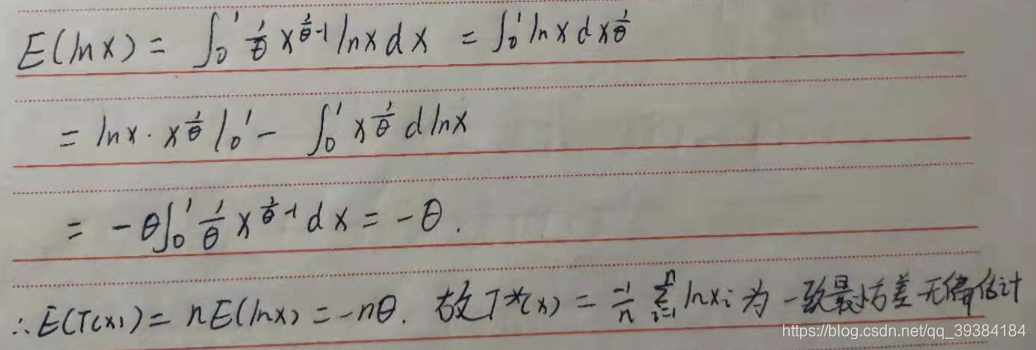 E(lnx) = ∫₀¹ 1/θ x^(1/θ -1) lnx dx = ∫₀¹ lnx dx^(1/θ)
= lnx · x^(1/θ) |₀¹ - ∫₀¹ x^(1/θ) d lnx
= -θ∫₀¹ 1/θ x^(1/θ -1) dx = -θ.
∴ E(T(x)) = nE(lnx) = -nθ. 故T*(x) = -1/n Σ_{i=1}^{n} lnxi 为一致最小方差无偏估计
https://blog.csdn.net/qq_39384184